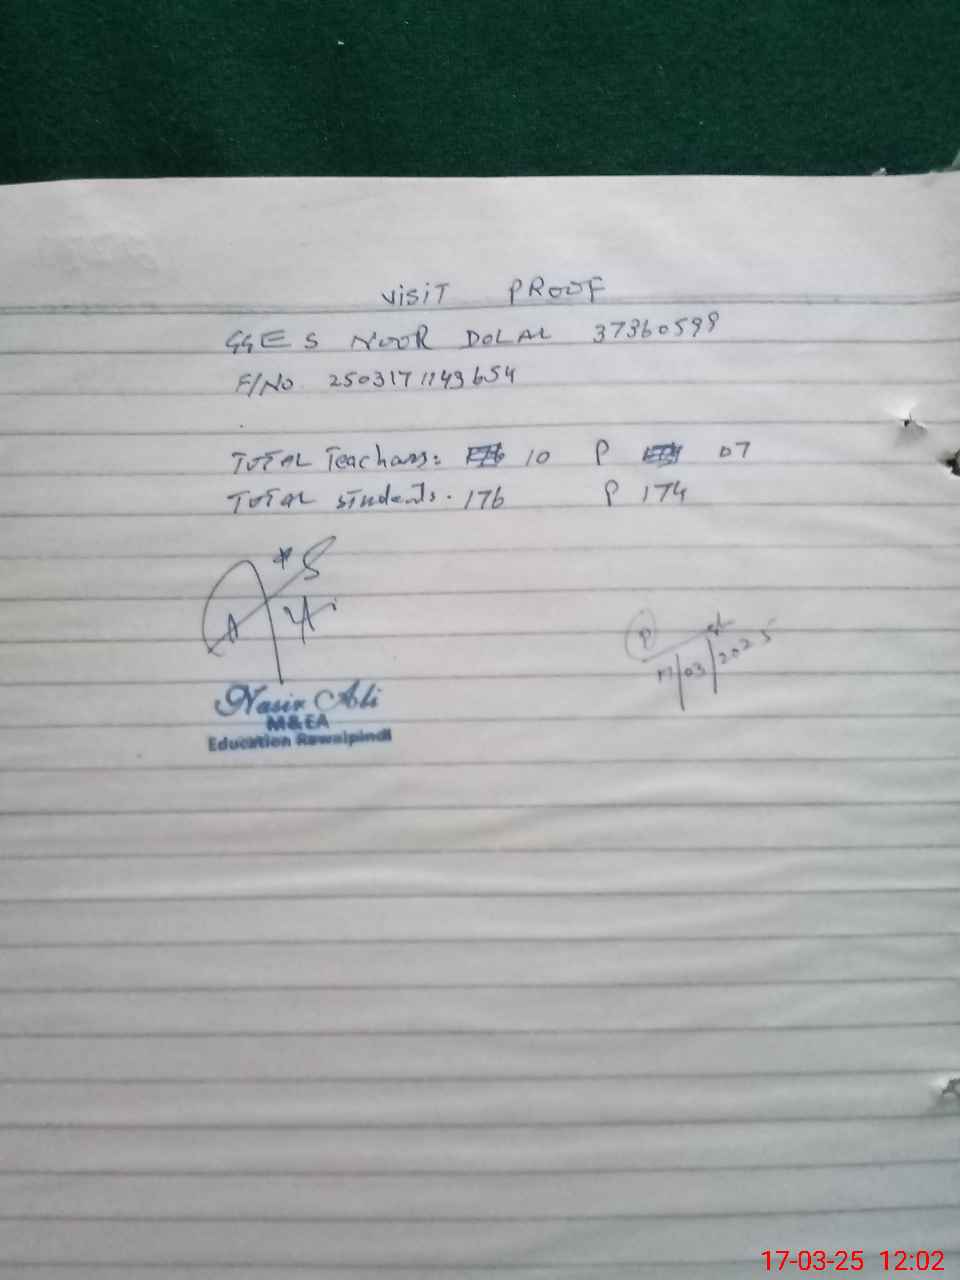 VISIT PROOF
GGES NOOR DOLAL 37360599
F/No 2503171143654
TOTAL Teachers: 10 P 07
TOTAL students. 176 P 174
Nasir Ali
M&EA
Education Rawalpindi
P
17/03/2025
17-03-25 12:02